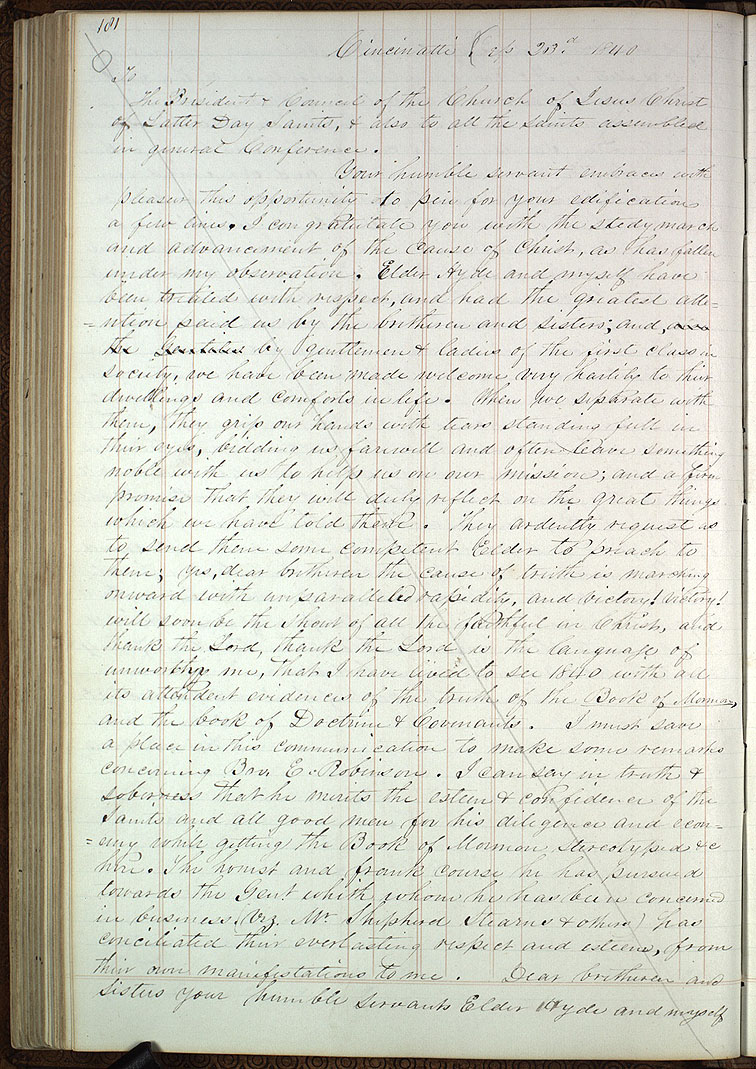 181
Cincinatti Sep 23rd 1840
To
The President & Council of the Church of Jesus Christ
of Latter Day Saints, & also to all the saints assembled
in general Conference.
Your humble servant embraces with
pleasure this opportunity to pen for your edification
a few lines. I congratutate you with the stedy march
and advancement of the Cause of Christ, as has fallen
under my observation. Elder Hyde and myself have
been treated with respect, and had the greatest atte-
=ntion paid us by the bretheren and sisters; and also
the Gentiles by gentlemen & ladies of the first class in
society, we have been made welcome very hartily to their
dwellings and comforts in life. When we separate with
them, they grip our hands with tears standing full in
their eyes, bidding us farewell and often leave something
noble with us to help us on our mission; and a firm
promise that they will duly reflect on the great things
which we have told them. They ardently request us
to send them some competent Elder to preach to
them; yes, dear bretheren the cause of truth is marching
onward with unparalleled rapidity, and victory! victory!
will soon be the shout of all the faithful in Christ, and
thank the Lord, thank the Lord is the language of
unworthy me, that I have lived to see 1840 with all
its attendent evidences of the truth of the Book of Mormon,
and the book of Doctrine & Covenants. I must save
a place in this communication to make some remarks
concerning Bro. E. Robinson. I can say in truth &
soberness that he merits the esteem & confidence of the
Saints and all good men for his diligence and econ-
=emy while getting the Book of Mormon stereotyped &c
here. The honest and frank course he has pursued
towards the Gent. which whom he has been concerned
in business (viz. Mr. Shepherd Stearns & others) has
conciliated their everlasting respect and esteem, from
their own manifestations to me. Dear bretheren and
sisters your humble servants Elder Hyde and myself